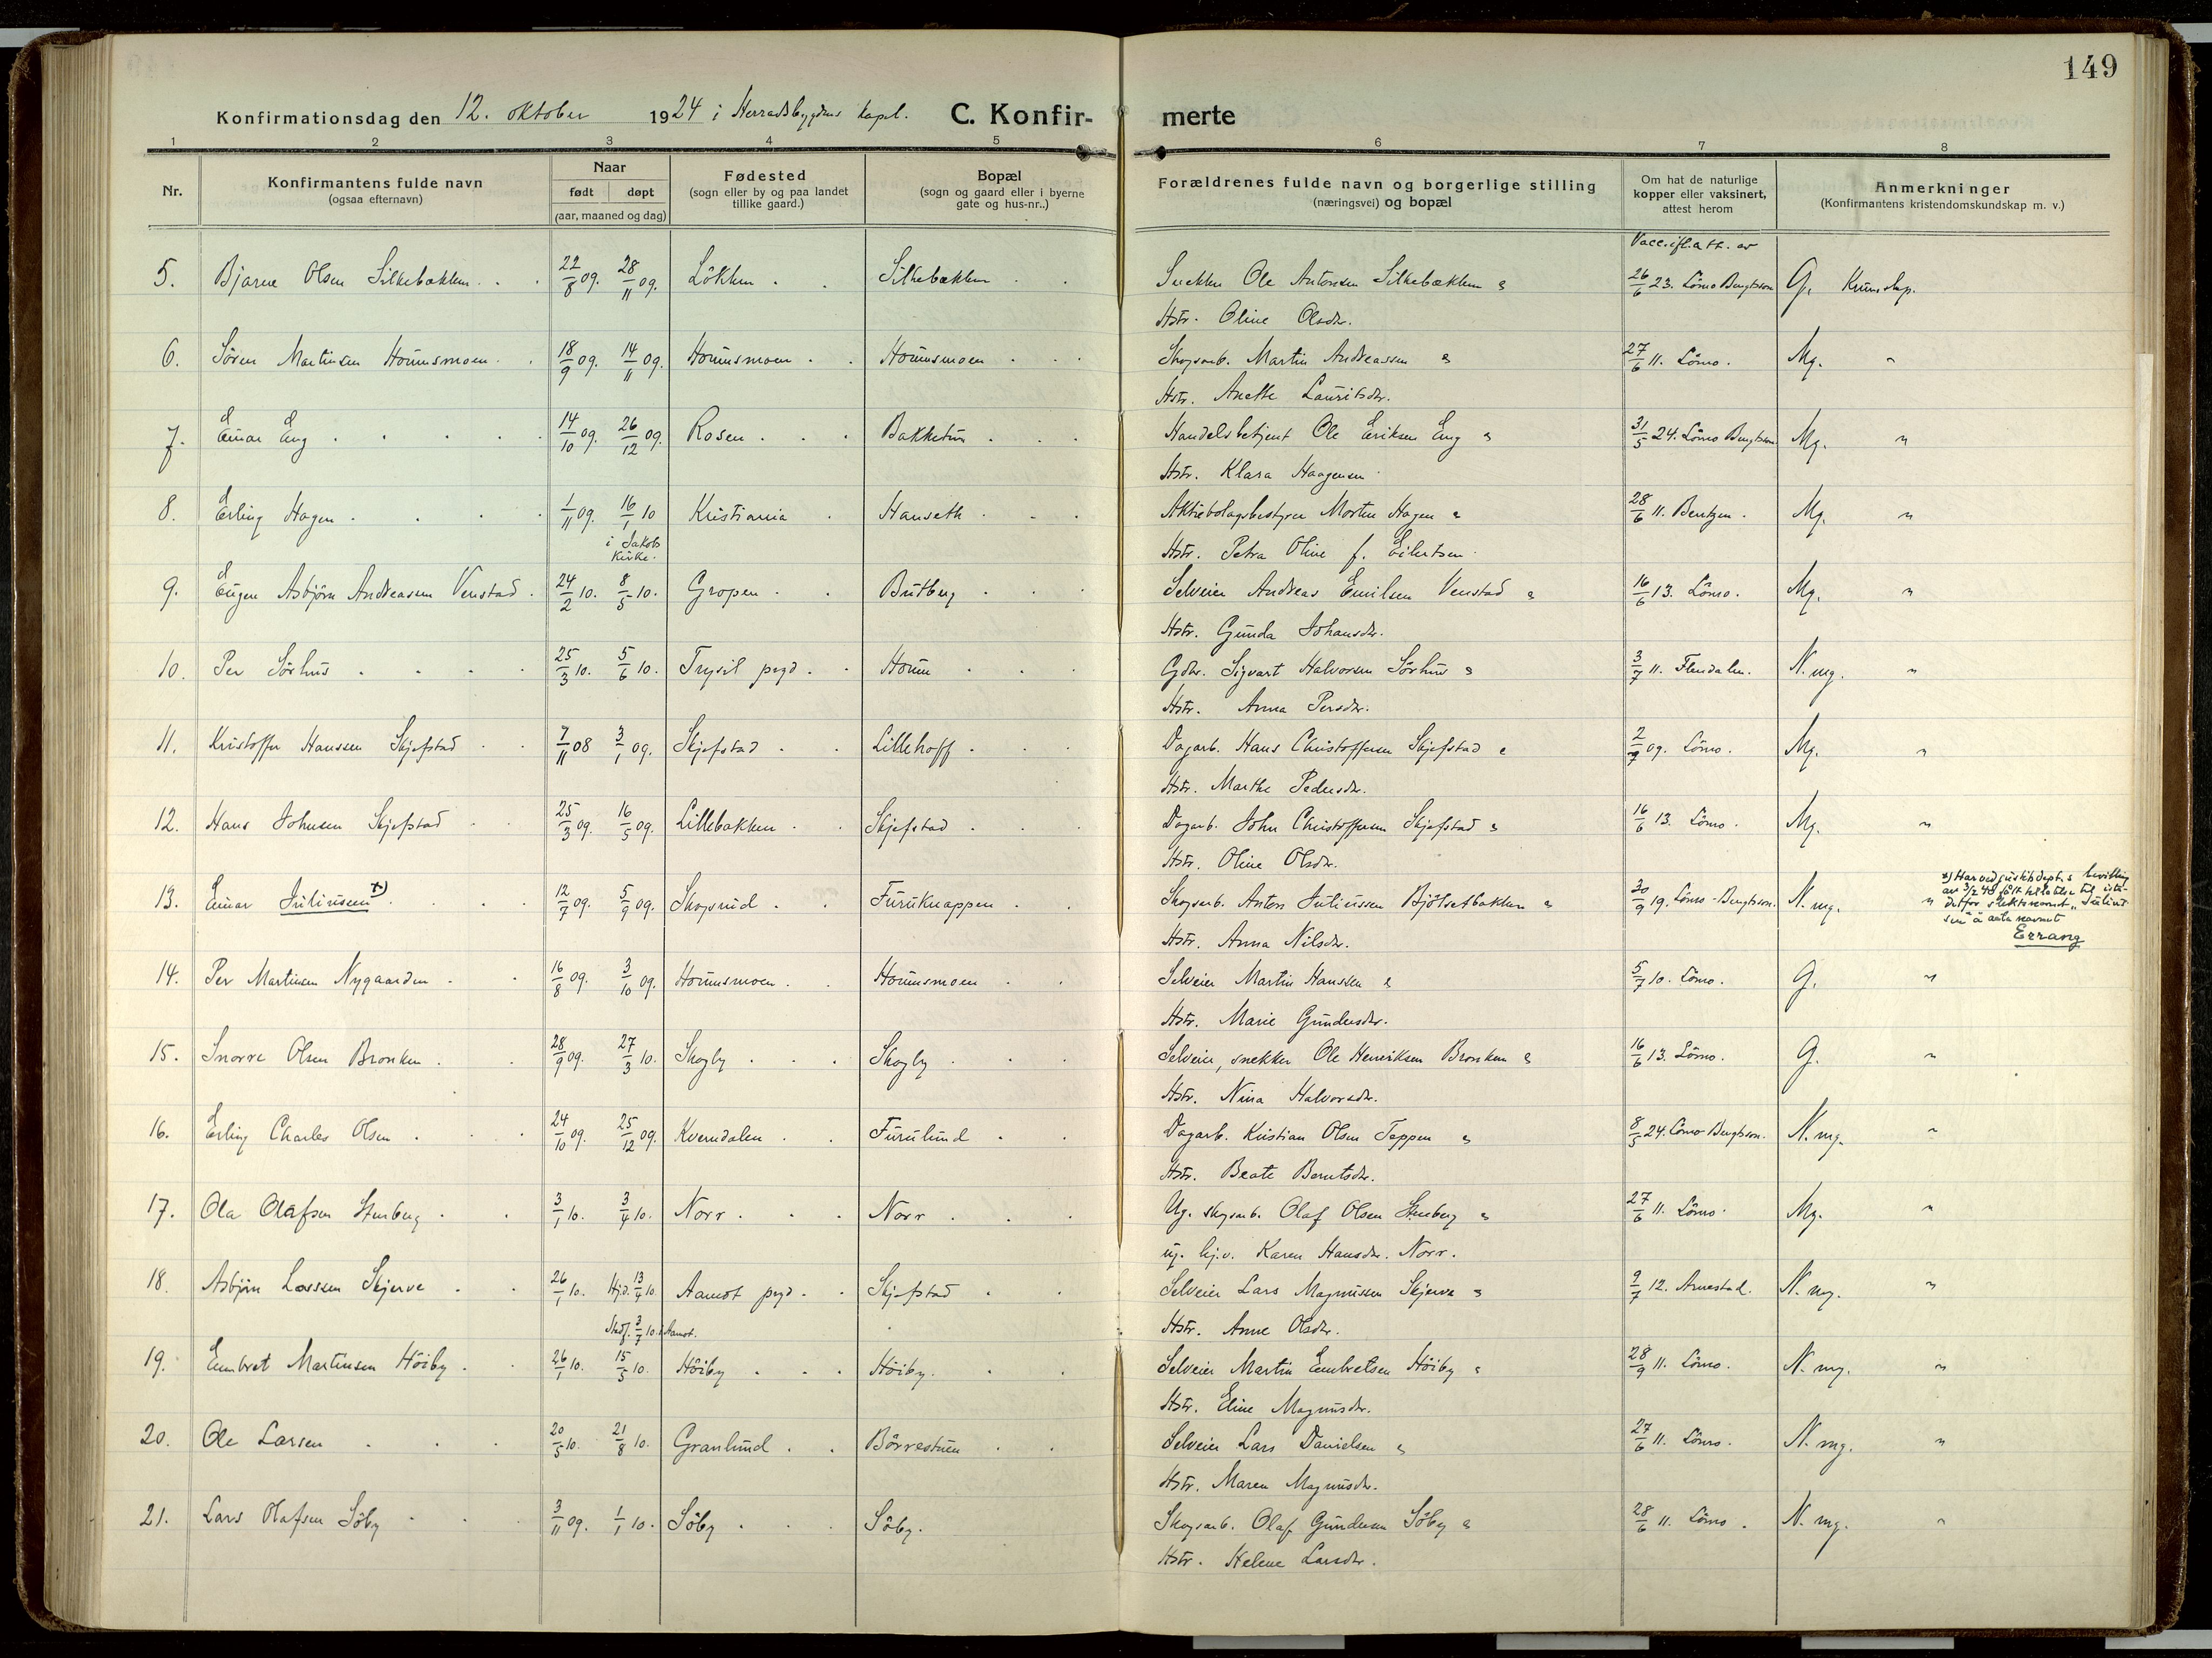 149
Konfirmationsdag den 12. oktober 1924 i Herradsbygdens kapel. C. Konfir- merte
1 2 3 4 5 6 7 8
Nr.
Konfirmantens fulde navn
(ogsaa efternavn)
Naar
født døpt
(aar, maaned og dag)
Fødested
(sogn eller by og paa landet
tillike gaard.)
Bopæl
(sogn og gaard eller i byerne
gate og hus-nr..)
Forældrenes fulde navn og borgerlige stilling
(næringsvei) og bopæl
Om hat de naturlige
kopper eller vaksinert,
attest herom
Anmerkninger
(Konfirmantens kristendomskundskap m. v.)
Vacc. ifl. att. av
5. Bjarne Olsen Silkebækken 22/8 09. 28/11 09. Lökken Silkebækken Snekker Ole Antonsen Silkebækken & 26/6 23. Lömo Bengtsson G. Kunnskap.
Hstr. Oline Olsdr.
6. Sören Martinsen Hornmoen 18/9 09. 14/11 09. Hornmoen Hornmoen Skogsarb. Martin Andreassen & 27/6 11. Lömo. Mg. "
Hstr. Anette Lauritsdr.
7. Einar Eng 14/10 09. 26/12 09. Rosen Bakketun Handelsbetjent Ole Eriksen Eng & 31/5 24. Lömo Bengtsson Mg. "
Hstr. Klara Haagensen
8. Erling Hagen 1/11 09. 16/1 10 Kristiania Hanseth Aktiebolagsbestyrer Morten Hagen & 28/6 11. Bentzen. Mg. "
i Jakobs
kirke. Hstr. Petra Oline f. Eilertsen
9. Eugen Asbjörn Andreassen Venstad 24/2 10. 8/5 10. Gropen Butberg Selveier Andreas Emilsen Venstad & 16/6 13. Lömo. Mg. "
Hstr. Gunda Johansdr.
10. Per Sörhus 25/3 10. 5/6 10. Trysil prgd. Horn Gdbr. Sigvart Halvorsen Sörhus & 3/7 11. Flendalen. N. mg. "
Hstr. Anna Persdr.
11. Kristoffer Hanssen Skjefstad 7/11 08 3/1 09. Skjefstad Lillehoff Dagarb. Hans Christoffersen Skjefstad & 2/9 09. Lömo. Mg. "
Hstr. Marthe Pedersdr.
12. Hans Johnsen Skjefstad 25/3 09. 16/5 09. Lillebakken Skjefstad Dagarb. John Christoffersen Skjefstad & 16/6 13. Lömo. Mg. "
Hstr. Oline Olsdr.
13. Einar Juliussen x) 12/7 09. 5/9 09. Skogsrud Furuknappen Skogsarb. Anton Juliussen Bjölsetbakken & 30/9 19. Lömo-Bengtsson. N. mg. "
x) Har ved justitsdept.s bevilling
av 3/2 40 fått tillatelse til iste-
detfor slektsnavnet "Julius
sen" å anta navnet
Errang
Hstr. Anna Nilsdr.
14. Per Martinsen Nygaarden 16/8 09. 3/10 09. Hornmoen Hornmoen Selveier Martin Hanssen & 5/7 10. Lömo. G. "
Hstr. Marie Gundersdr.
15. Snorre Olsen Bronken 28/9 09. 27/3 10. Skogly Skogly Selveier, snekker Ole Henriksen Bronken & 16/6 13. Lömo. G. "
Hstr. Nina Halvorsdr.
16. Erling Charles Olsen 24/10 09. 25/12 09. Kverndalen Furulund Dagarb. Kristian Olsen Teppen & 8/5 24. Lömo-Bengtsson. N. mg. "
Hstr. Beate Berntsdr.
17. Ola Olafsen Stenberg 3/1 10. 3/4 10. Norr Norr Ug. skogsarb. Olaf Olsen Stenberg & 27/6 11. Lömo. Mg. "
ug. hj.v. Karen Hansdr. Norr.
18. Asbjörn Larssen Skjerve 26/1 10. Hjd. 13/4 10. Aamot prgd. Skjefstad Selveier Lars Magnussen Skjerve & 9/7 12. Arnestad. N. mg. "
Stadf. 3/7 10. i Aamot. Hstr. Anne Olsdr.
19. Embret Martinsen Höiby 26/1 10. 15/5 10. Höiby Höiby. Selveier Martin Embretsen Höiby & 28/9 11. Lömo. N. mg. "
Hstr. Eline Magnusdr.
20. Ole Larsen 20/5 10. 21/8 10. Granlund Börrestuen Selveier Lars Danielsen & 27/6 11. Lömo. N. mg. "
Hstr. Maren Magnusdr.
21. Lars Olafsen Söby 3/11 09. 1/1 10. Söby Söby. Skogsarb. Olaf Gundersen Söby & 28/6 11. Lömo. N. mg. "
Hstr. Helene Larsdr.